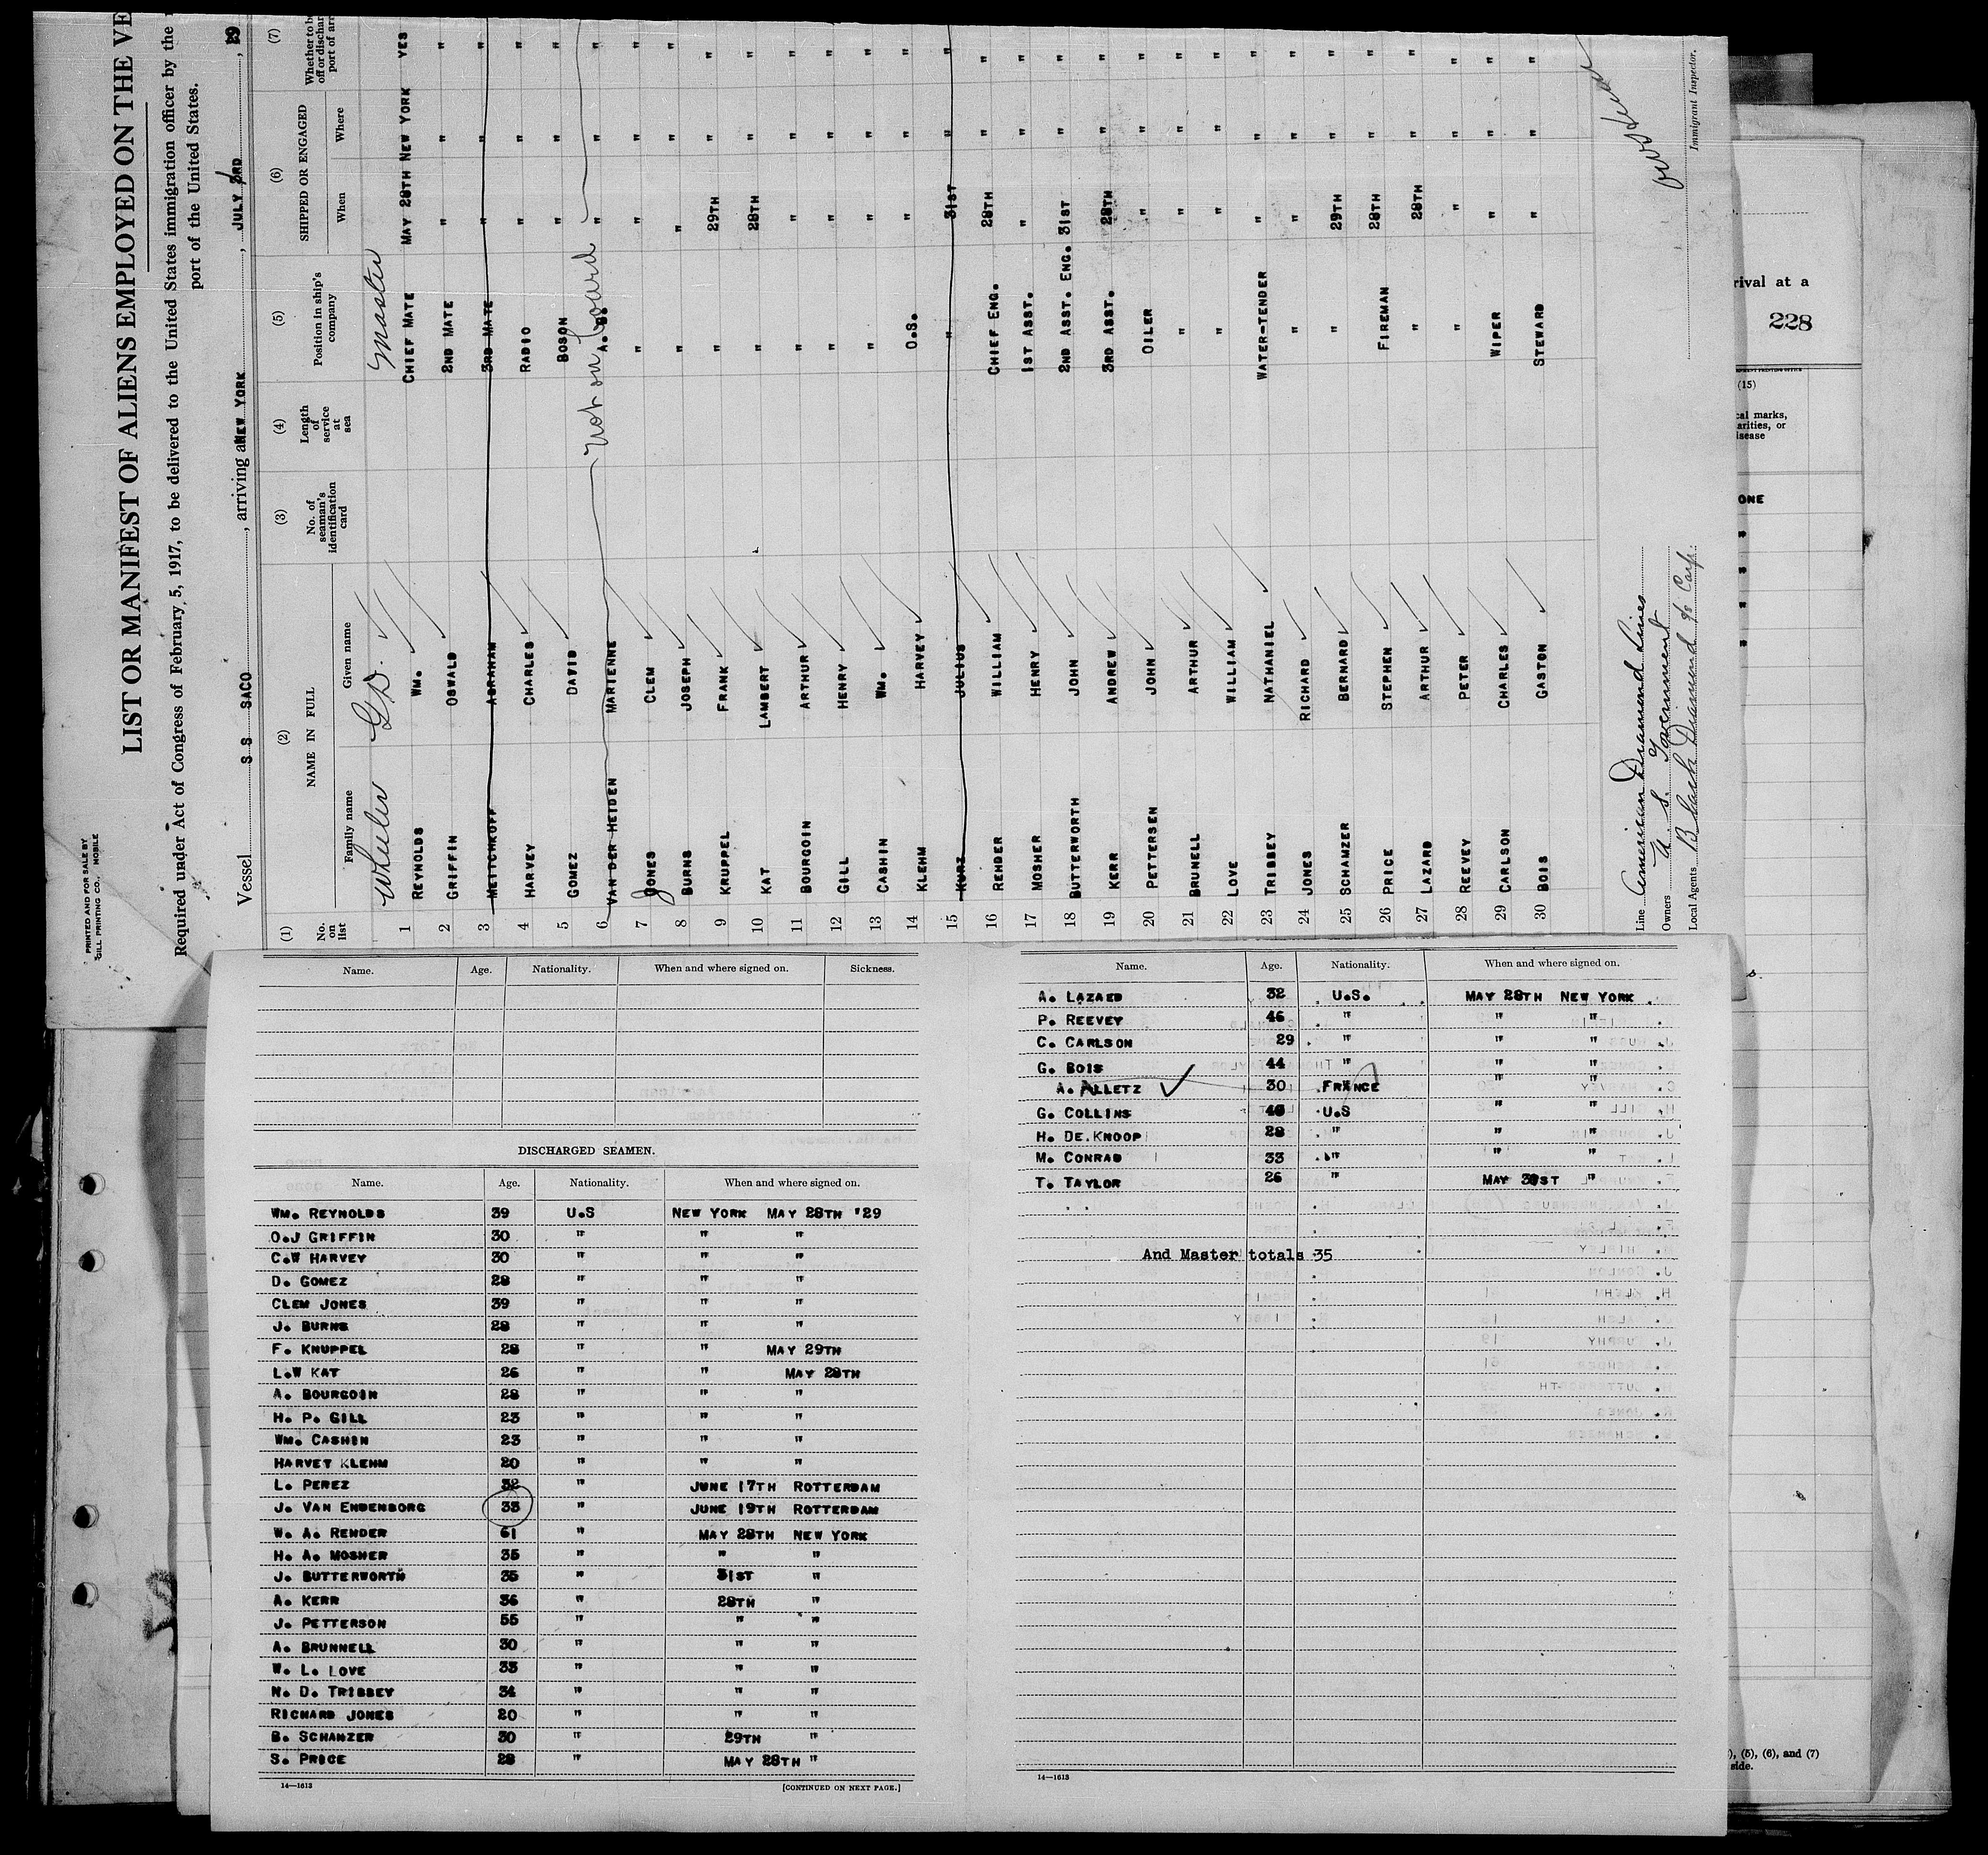 PRINTED AND FOR SALE BY
GILL PRINTING CO., MOBILE
LIST OR MANIFEST OF ALIENS EMPLOYED ON THE VE
Required under Act of Congress of February 5, 1917, to be delivered to the United States immigration officer by the
port of the United States.
Vessel S S SACO, arriving at NEW YORK, JULY 3RD, 29
(1) (2) (3) (4) (5) (6) (7)
No. on list NAME IN FULL Family name Given name No. of seaman's identification card Length of service at sea Position in ship's company SHIPPED OR ENGAGED When Where Whether to be off or dischar port of arr
Wheeler G.D. Master
1 REYNOLDS WM. CHIEF MATE MAY 28TH NEW YORK YES
2 GRIFFIN OSWALD 2ND MATE " " "
3 METTCHKOFF ABRAHAM 3RD MATE " " "
4 HARVEY CHARLES RADIO " " "
5 GOMEZ DAVID BOSON " " "
6 VAN DER HEIDEN MARIENNE not on board A.B. " " "
7 JONES CLEM " " " "
8 BURNS JOSEPH " " " "
9 KRUPPEL FRANK " 29TH " "
10 KAT LAMBERT " 28TH " "
11 BOURGOIN ARTHUR " " " "
12 GILL HENRY " " " "
13 CASHIN WM. " " " "
14 KLEHM HARVEY O.S. " " "
15 KURZ JULIUS " 31ST " "
16 RENDER WILLIAM CHIEF ENG. 28TH " "
17 MOSHER HENRY 1ST ASST. " " "
18 BUTTERWORTH JOHN 2ND ASST. ENG. 31ST " "
19 KERR ANDREW 3RD ASST. 28TH " "
20 PETTERSEN JOHN OILER " " "
21 BRUNELL ARTHUR " " " "
22 LOVE WILLIAM " " " "
23 TRIBBEY NATHANIEL WATER-TENDER " " "
24 JONES RICHARD " " " "
25 SCHAMZER BERNARD " 29TH " "
26 PRICE STEPHEN FIREMAN 28TH " "
27 LAZARD ARTHUR " 28TH " "
28 REEVEY PETER " " " "
29 CARLSON CHARLES WIPER " " "
30 BOIS GASTON STEWARD " " "
Line American Diamond Lines
Owners U. S. Government
Local Agents Black Diamond Corp.
Immigrant Inspector.
rival at a
228
(15)
cal marks,
arities, or
isease
ONE
"
"
"
"
), (5), (6), and (7)
side.
Name. Age. Nationality. When and where signed on. Sickness.
DISCHARGED SEAMEN.
Name. Age. Nationality. When and where signed on.
WM. REYNOLDS 39 U.S NEW YORK MAY 28TH '29
O.J GRIFFIN 30 " " "
C.W HARVEY 30 " " "
D. GOMEZ 28 " " "
CLEM JONES 39 " " "
J. BURNS 28 " " "
F. KNUPPEL 28 " " MAY 29TH
L.W KAT 26 " " MAY 28TH
A. BOURGOIN 28 " " "
H. P. GILL 23 " " "
WM. CASHIN 23 " " "
HARVET KLEHM 20 " " "
L. PEREZ 32 " JUNE 17TH ROTTERDAM
J. VAN ENDENBORG 33 " JUNE 19TH ROTTERDAM
W. A. RENDER 61 " MAY 28TH NEW YORK
H. A. MOSHER 35 " " "
J. BUTTERWORTH 35 " 31ST "
A. KERR 36 " 28TH "
J. PETTERSON 55 " " "
A. BRUNNELL 30 " " "
W. L. LOVE 33 " " "
N. D. TRIBBEY 34 " " "
RICHARD JONES 20 " " "
B. SCHAMZER 30 " 29TH "
S. PRICE 28 " MAY 28TH "
14—1613 [CONTINUED ON NEXT PAGE.]
Name. Age. Nationality. When and where signed on.
A. LAZAED 32 U.S. MAY 28TH NEW YORK
P. REEVEY 46 " " "
C. CARLSON 29 " " "
G. BOIS 44 " " "
A. ALLETZ 30 FRANCE " "
G. COLLINS U.S " "
H. DE.KNOOP 28 " " "
M. CONRAD 33 " " "
T. TAYLOR 26 " MAY 31ST "
And Master totals 35
14—1613